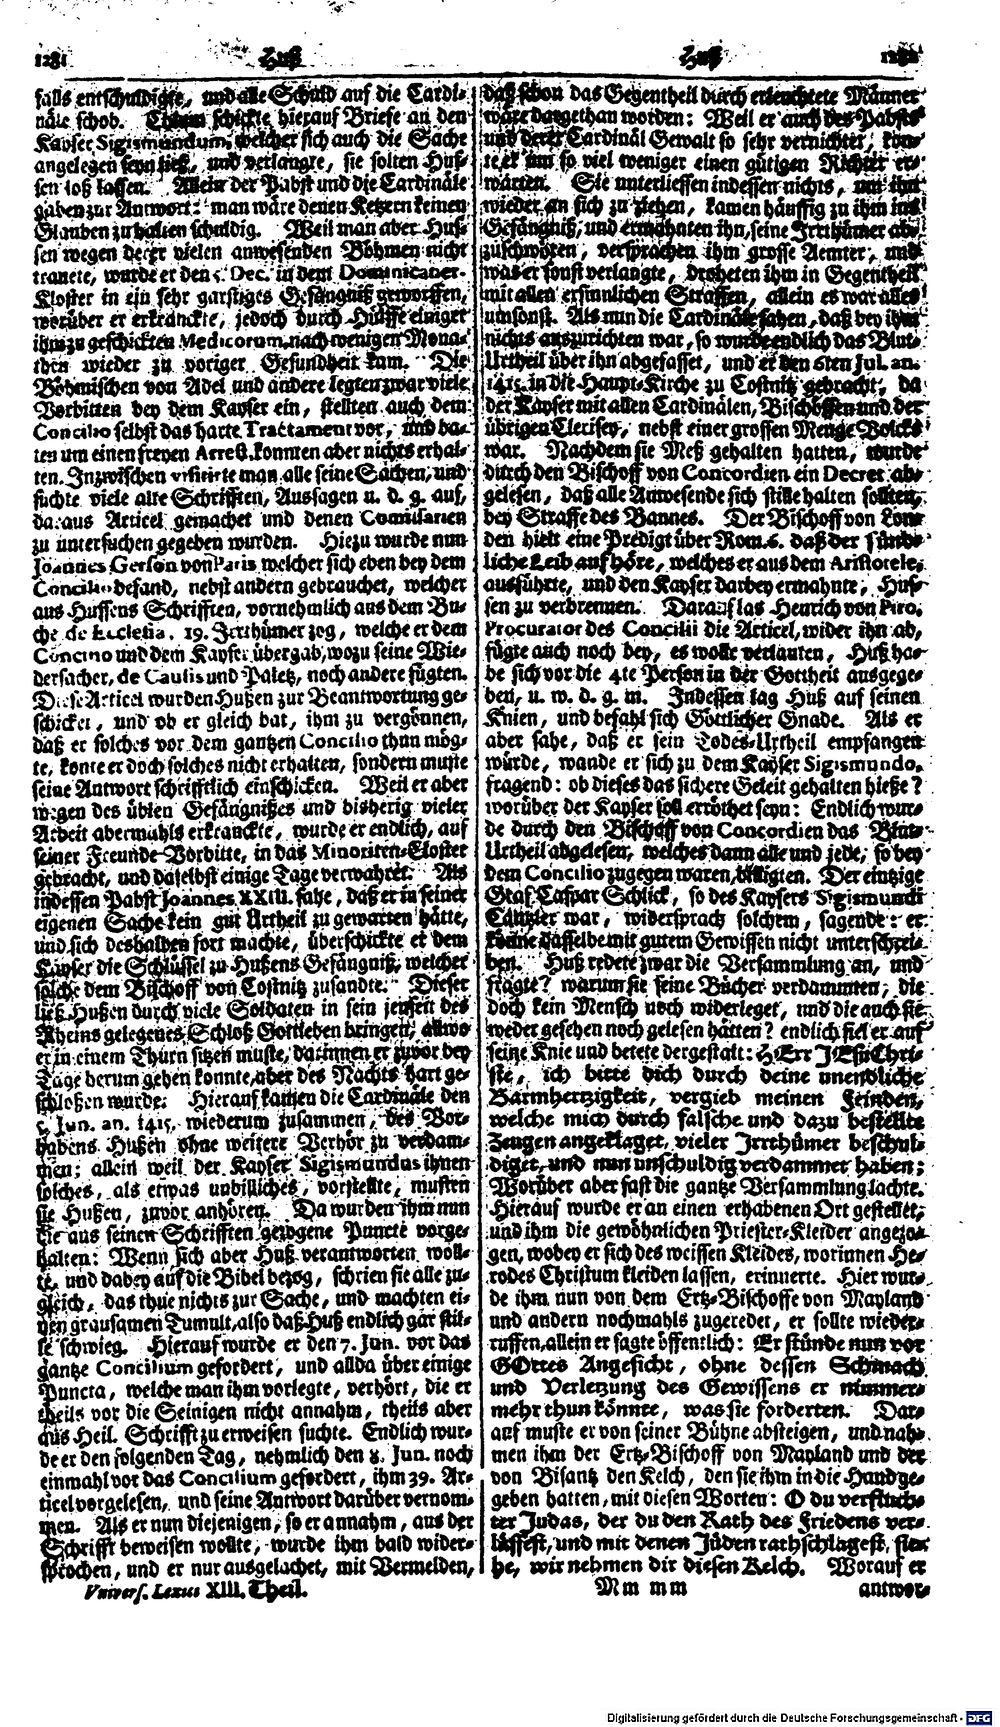 1281 Huß
Huß 1282
falls entschuldigte, und alle Schuld auf die Cardi-
näle schob. schickte hierauf Briefe an den
Kayser Sigismundum, welcher sich auch die Sache
angelegen seyn ließ, und verlangte, sie solten Huß-
sen loß lassen. Allein der Pabst und die Cardinäle
gaben zur Antwort: man wäre denen Ketzern keinen
Glauben zu halten schuldig. Weil man aber Huß-
sen wegen derer vielen anwesenden Böhmen nicht
trauete, wurde er den Dec. in dem Dominicaner-
Kloster in ein sehr garstiges Gefängniß geworffen,
worüber er erkranckte, jedoch durch Hülffe einiger
ihm zu geschickten Medicorum nach wenigen Mona-
then wieder zu voriger Gesundheit kam. Die
Böhmischen von Adel und andere legten zwar viele
Vorbitten bey dem Kayser ein, stellten auch dem
Concilio selbst das harte Tractament vor, und ba-
ten um einen freyen Arrest, konnten aber nichts erhal-
ten. Inzwischen visitirte man alle seine Sachen, und
suchte viele alte Schrifften, Aussagen u. d. g. auf,
daraus Articel gemachet und denen Commissarien
zu untersuchen gegeben wurden. Hiezu wurde nun
Joannes Gerson von Paris, welcher sich eben bey dem
Concilio befand, nebst andern gebrauchet, welcher
aus Hussens Schrifften, vornehmlich aus dem Bu-
che de Ecclesia, 19. Irrthümer zog, welche er dem
Concilio und dem Kayser übergab, wozu seine Wie-
dersacher, de Causis und Paletz, noch andere fügten.
Diese Articel wurden Hußen zur Beantwortung ge-
schicket, und ob er gleich bat, ihm zu vergönnen,
daß er solches vor dem gantzen Concilio thun mög-
te, konte er doch solches nicht erhalten, sondern muste
seine Antwort schrifftlich einschicken. Weil er aber
wegen des üblen Gefängnißes und bisherig vieler
Arbeit abermahls erkranckte, wurde er endlich, auf
seiner Freunde Vorbitte, in das Minoriten-Closter
gebracht, und daselbst einige Tage verwahret. Als
indessen Pabst Joannes XXIII. sahe, daß er in seiner
eigenen Sache kein gut Urtheil zu gewarten hätte,
und sich deshalben fort machte, überschickte er dem
Kayser die Schlüssel zu Hußens Gefängniß, welcher
solche dem Bischoff von Costnitz zusandte. Dieser
ließ Hußen durch viele Soldaten in sein jenseit des
Rheins gelegenes Schloß Gottleben bringen, allwo
er in einem Thurn sitzen muste, darinnen er zuvor bey
Tage herum gehen konnte, aber des Nachts hart ge-
schloßen wurde. Hierauf kamen die Cardinäle den
5. Jun. an. 1415. wiederum zusammen, des Vor-
habens Hußen ohne weitere Verhör zu verdam-
men; allein weil der Kayser Sigismundus ihnen
solches, als etwas unbilliches, vorstellte, musten
sie Hußen, zuvor anhören. Da wurden ihm nun
die aus seinen Schrifften gezogene Puncte vorge-
halten: Wenn sich aber Huß verantworten woll-
te, und dabey auf die Bibel bezog, schrien sie alle zu-
gleich, das thue nichts zur Sache, und machten ei-
nen grausamen Tumult, also daß Huß endlich gar stil-
le schwieg. Hierauf wurde er den 7. Jun. vor das
gantze Concilium gefordert, und allda über einige
Puncta, welche man ihm vorlegte, verhört, die er
theils vor die Seinigen nicht annahm, theils aber
aus Heil. Schrifft zu erweisen suchte. Endlich wur-
de er den folgenden Tag, nehmlich den 8. Jun. noch
einmahl vor das Concilium gefordert, ihm 39. Ar-
ticel vorgelesen, und seine Antwort darüber vernom-
men. Als er nun diejenigen, so er annahm, aus der
Schrifft beweisen wollte, wurde ihm bald wider-
sprochen, und er nur ausgelachet, mit Vermelden,
Univers. Lexici XIII. Theil.
daß schon das Gegentheil durch erleuchtete Männer
wäre dargethan worden: Weil er auch des Pabsts
und derer Cardinäl Gewalt so sehr vernichtet, kön-
te er um so viel weniger einen gütigen Richter er-
warten. Sie unterliessen indessen nichts, um ihn
wieder an sich zu ziehen, kamen häuffig zu ihm ins
Gefängniß, und ermahnten ihn, seine Irrthümer ab-
zuschwören, versprachen ihm grosse Aemter, und
was er sonst verlangte, droheten ihm in Gegentheil
mit allen ersinnlichen Straffen, allein es war alles
umsonst. Als nun die Cardinäle sahen, daß bey ihm
nichts auszurichten war, so wurde endlich das Blut-
Urtheil über ihn abgefasset, und er den 6ten Jul. an.
1415. in die Haupt-Kirche zu Costnitz gebracht, da
der Kayser mit allen Cardinälen, Bischöffen und der
übrigen Clerisey, nebst einer grossen Menge Volcks
war. Nachdem sie Meß gehalten hatten, wurde
durch den Bischoff von Concordien ein Decret ab-
gelesen, daß alle Anwesende sich stille halten sollten,
bey Straffe des Bannes. Der Bischoff von Lon-
den hielt eine Predigt über Rom. 6. daß der sünd-
liche Leib auf höre, welches er aus dem Aristotele,
ausführte, und den Kayser darbey ermahnte, Hus-
sen zu verbrennen. Darauf las Henrich von Piro,
Procurator des Concilii die Articel, wider ihn ab,
fügte auch noch bey, es wolle verlauten, Huß ha-
be sich vor die 4te Person in der Gottheit ausgege-
ben, u. w. d. g. m. Indessen lag Huß auf seinen
Knien, und befahl sich Göttlicher Gnade. Als er
aber sahe, daß er sein Todes-Urtheil empfangen
würde, wande er sich zu dem Kayser Sigismundo,
fragend: ob dieses das sichere Geleit gehalten hieße?
worüber der Kayser soll erröthet seyn: Endlich wur-
de durch den Bischoff von Concordien das Blut-
Urtheil abgelesen, welches dann alle und jede, so bey
dem Concilio zugegen waren, billigten. Der eintzige
Graf Caspar Schlick, so des Kaysers Sigismundi
Cantzler war, widersprach solchem, sagende: er
könne dasselbe mit gutem Gewissen nicht unterschrei-
ben. Huß redete zwar die Versammlung an, und
fragte? warum sie seine Bücher verdammten, die
doch kein Mensch noch widerleget, und die auch sie
weder gesehen noch gelesen hätten? endlich fiel er auf
seine Knie und betete dergestalt: HErr JEsu Chri-
ste, ich bitte dich durch deine unendliche
Barmhertzigkeit, vergieb meinen Feinden,
welche mich durch falsche und dazu bestellte
Zeugen angeklaget, vieler Irrthümer beschul-
diget, und nun unschuldig verdammet haben;
Worüber aber fast die gantze Versammlung lachte.
Hierauf wurde er an einen erhabenen Ort gestellet,
und ihm die gewöhnlichen Priester-Kleider angezo-
gen, wobey er sich des weissen Kleides, worinnen He-
rodes Christum kleiden lassen, erinnerte. Hier wur-
de ihm nun von dem Ertz-Bischoffe von Mayland
und andern nochmahls zugeredet, er sollte wieder-
ruffen, allein er sagte öffentlich: Er stünde nun vor
GOttes Angesicht, ohne dessen Schmach
und Verletzung des Gewissens er nimmer-
mehr thun könnte, was sie forderten. Dar-
auf muste er von seiner Bühne absteigen, und nah-
men ihm der Ertz-Bischoff von Mayland und der
von Bisantz den Kelch, den sie ihm in die Hand ge-
geben hatten, mit diesen Worten: O du verfluch-
ter Judas, der du den Rath des Friedens ver-
lässest, und mit denen Jüden rathschlagest, sie-
he, wir nehmen dir diesen Kelch. Worauf er
Mm mm antwor-
Digitalisierung gefördert durch die Deutsche Forschungsgemeinschaft - DFG